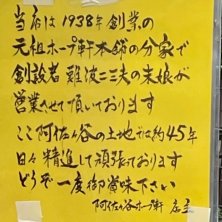 当店は1938年創業の
元祖ホープ軒本舗の分家で
創設者 難波二三夫の末娘が
営業させて頂いております
ここ阿佐ヶ谷の土地では約45年
日々精進して頑張っております
どうぞ一度御賞味下さい
阿佐ヶ谷ホープ軒 店主